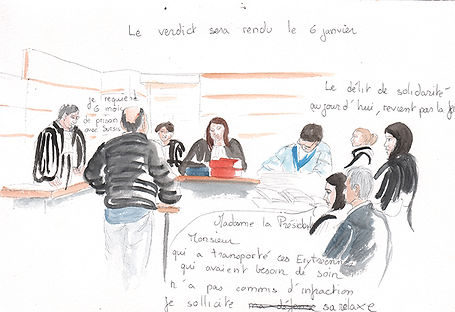 Le verdict sera rendu le 6 janvier
Le délit de solidarité
aujourd'hui, revient par la
je requière
6 mois
de prison
avec sursis
Madame la
Monsieur
qui a transporté ces
qui avaient besoin de soin
n'a pas commis d'infraction
Je sollicite ma défense sa relaxe